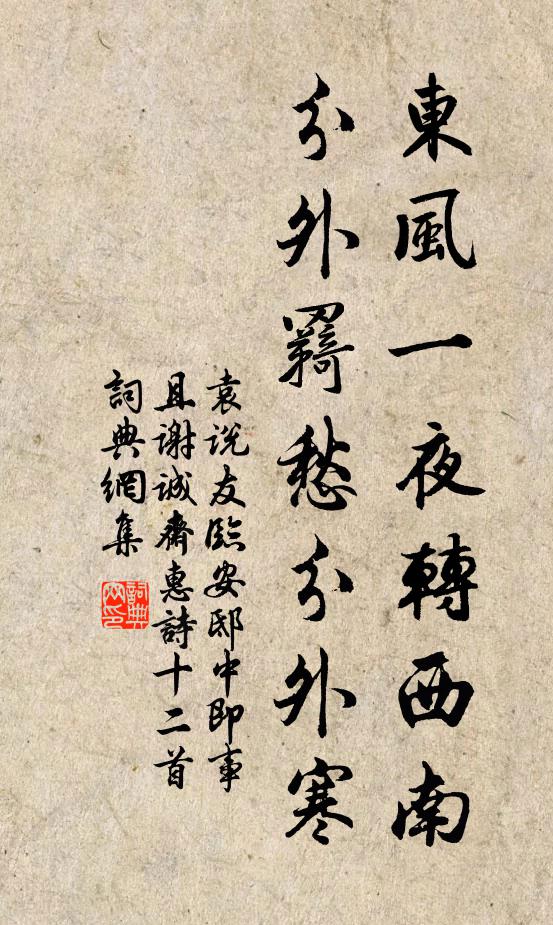 東風一夜轉西南
分外羇愁分外寒
袁説友臨安邸中即事
且謝誠齋惠詩十二首
詞典網集
詞典網印